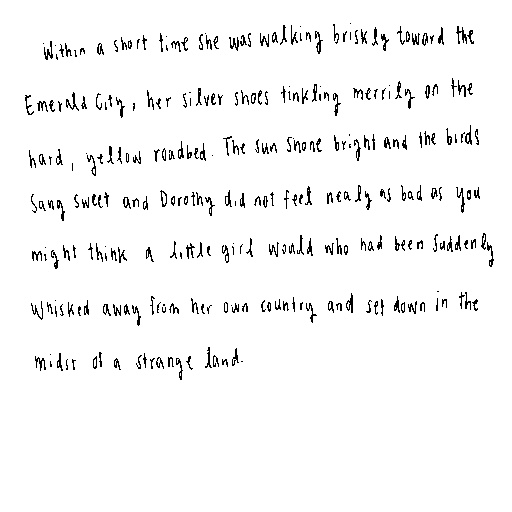 Within a short time she was walking briskly toward the
Emerald City, her silver shoes tinkling merrily on the
hard, yellow roadbed. The sun shone bright and the birds
sang sweet and Dorothy did not feel nealy as bad as you
might think a little girl would who had been suddenly
whisked away from her own country and set down in the
midst of a strange land.